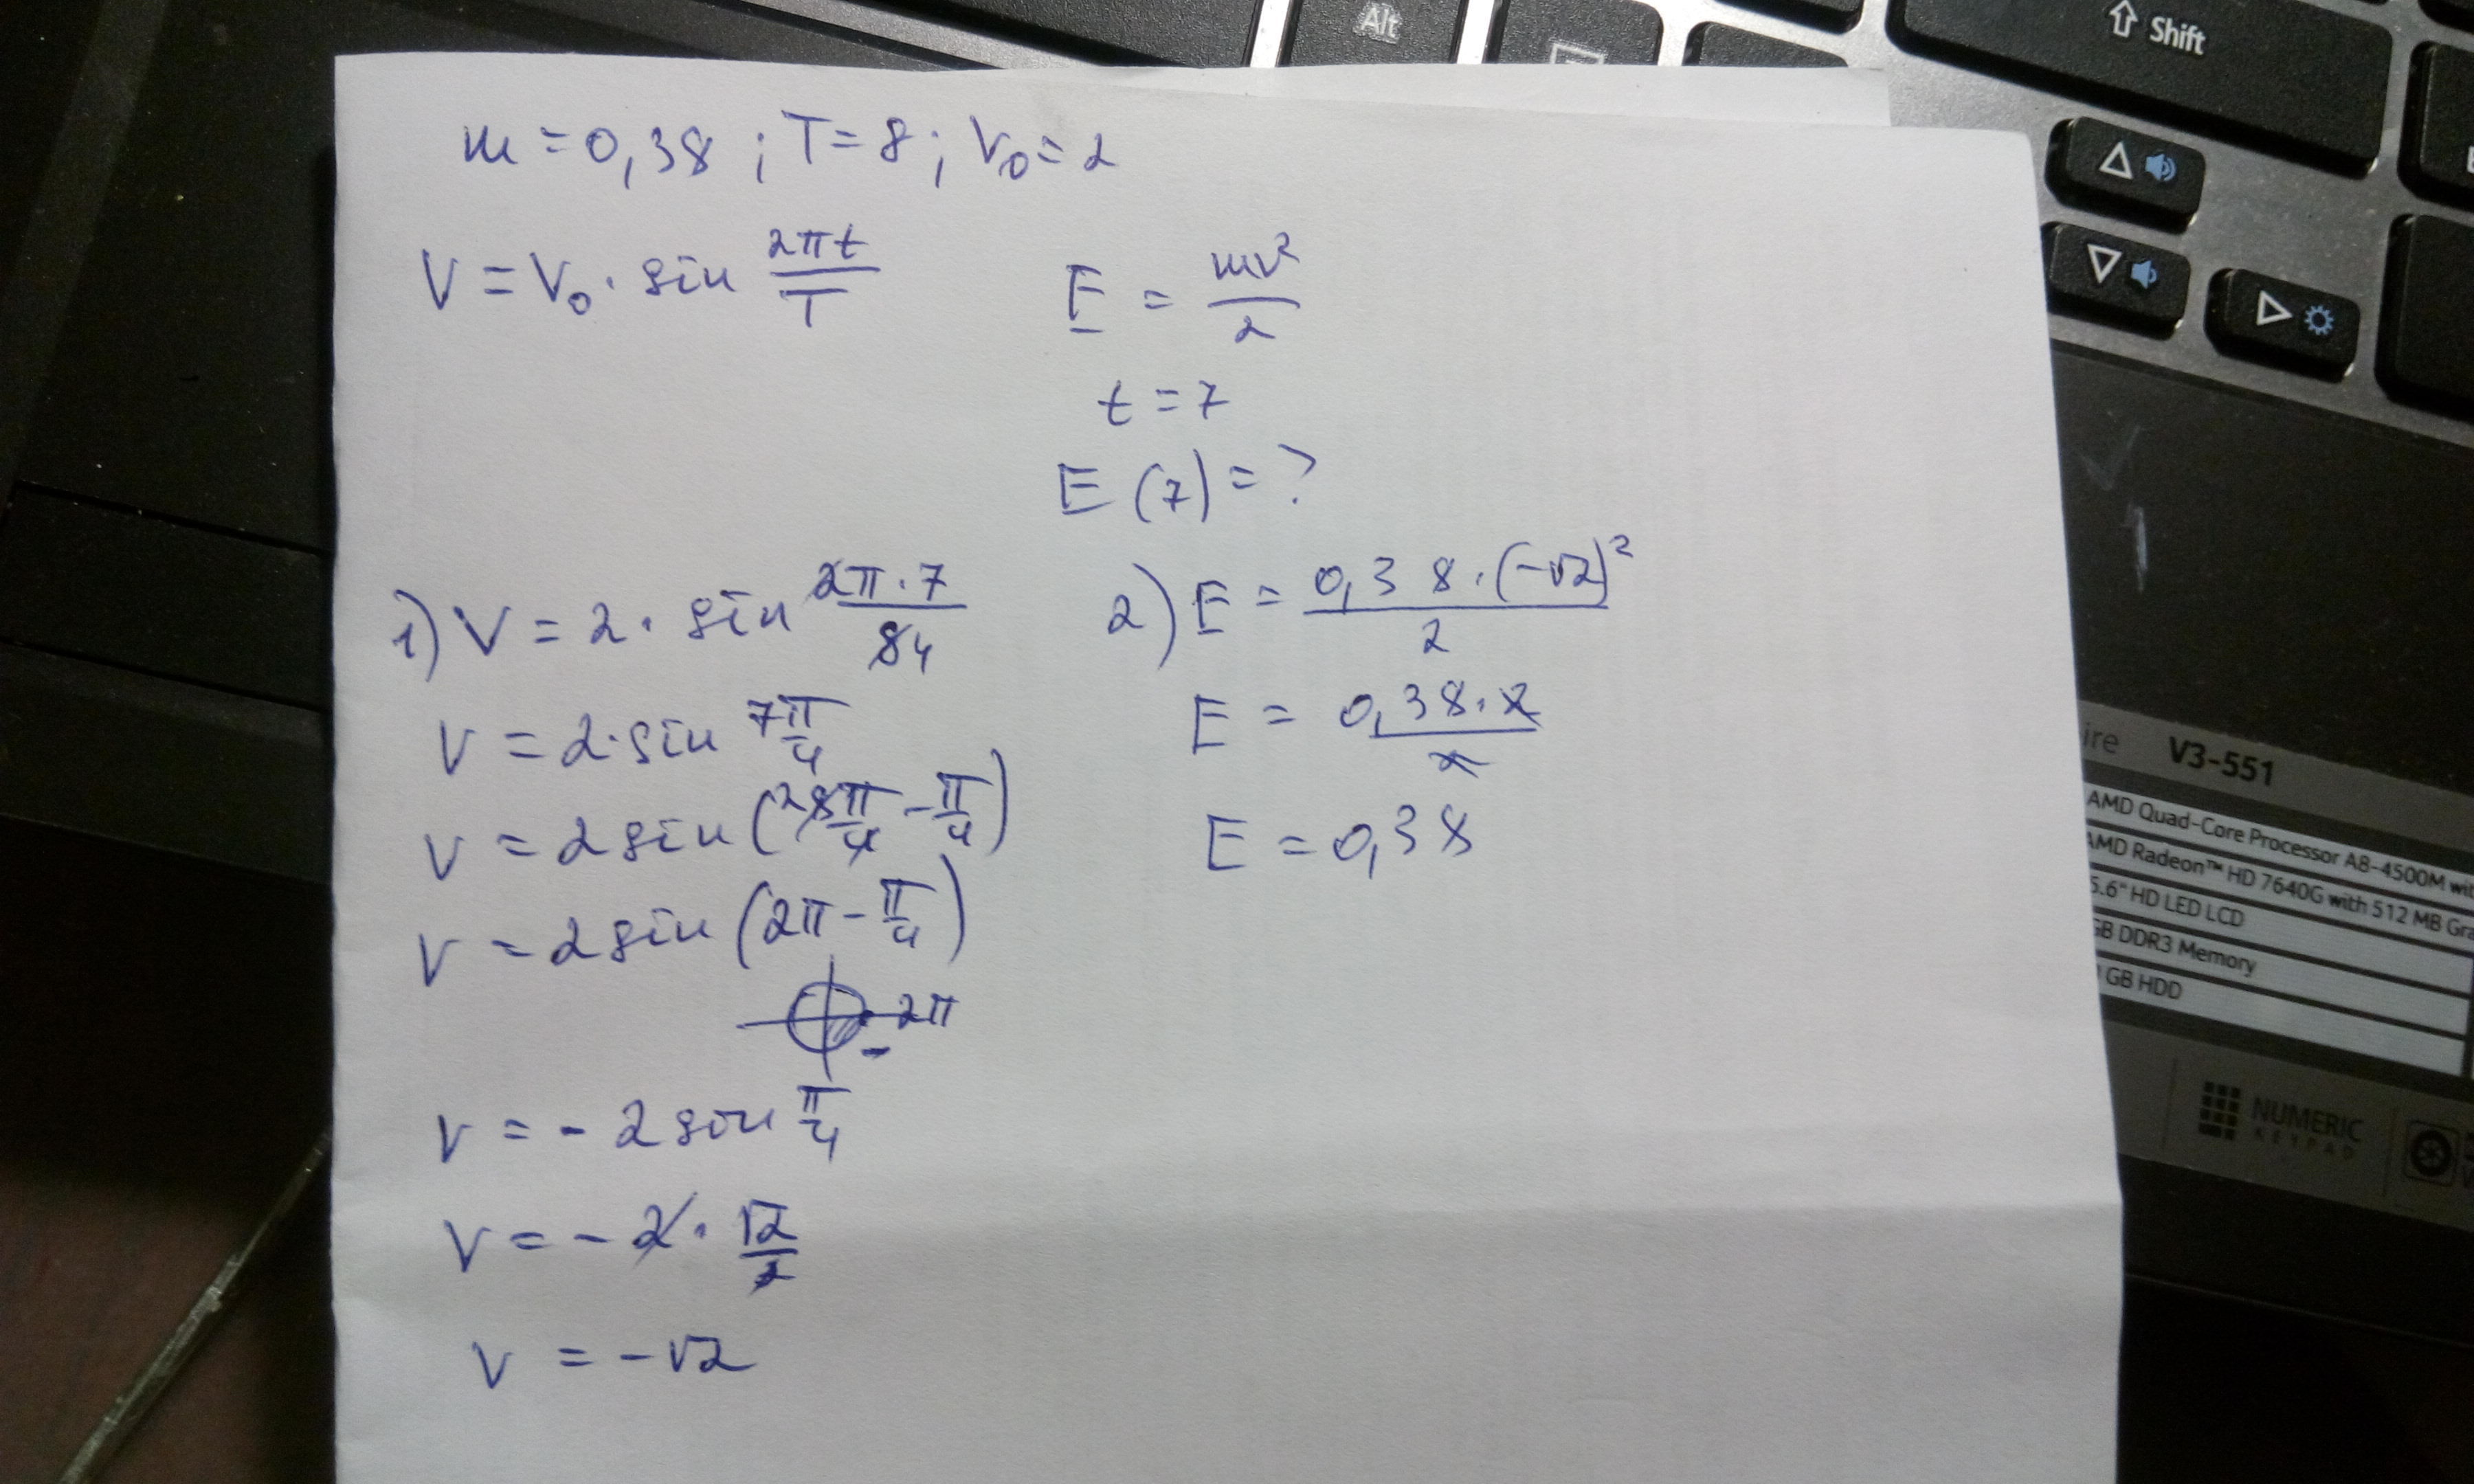 m = 0,38 ; T = 8 ; V₀ = 2
V = V₀ · sin 2πt/T
E = mv²/2
t = 7
E (7) = ?
1) V = 2 · sin 2π·7/8 4
V = 2 · sin 7π/4
V = 2 sin (2 8π/4 - π/4)
V = 2 sin (2π - π/4)
2π
-
V = - 2 sin π/4
V = - 2 · √2/2
V = - √2
2) E = 0,38 · (-√2)²/2
E = 0,38 · 2/2
E = 0,38
Alt
Shift
ire V3-551
AMD Quad-Core Processor A8-4500M wit
AMD Radeon™ HD 7640G with 512 MB Gra
5.6" HD LED LCD
GB DDR3 Memory
GB HDD
NUMERIC
KEYPAD